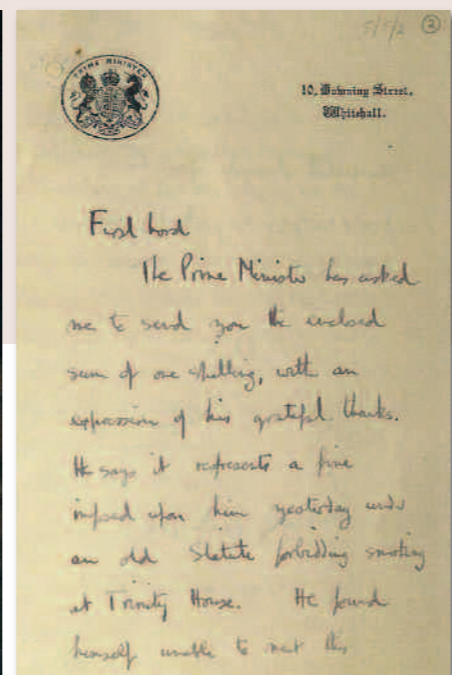 5/5/2 2
PRIME MINISTER
10, Downing Street,
Whitehall.
First Lord
The Prime Minister has asked
me to send you the enclosed
sum of one shilling, with an
expression of his grateful thanks.
He says it represents a fine
imposed upon him yesterday under
an old Statute forbidding smoking
at Trinity House. He found
himself unable to meet this